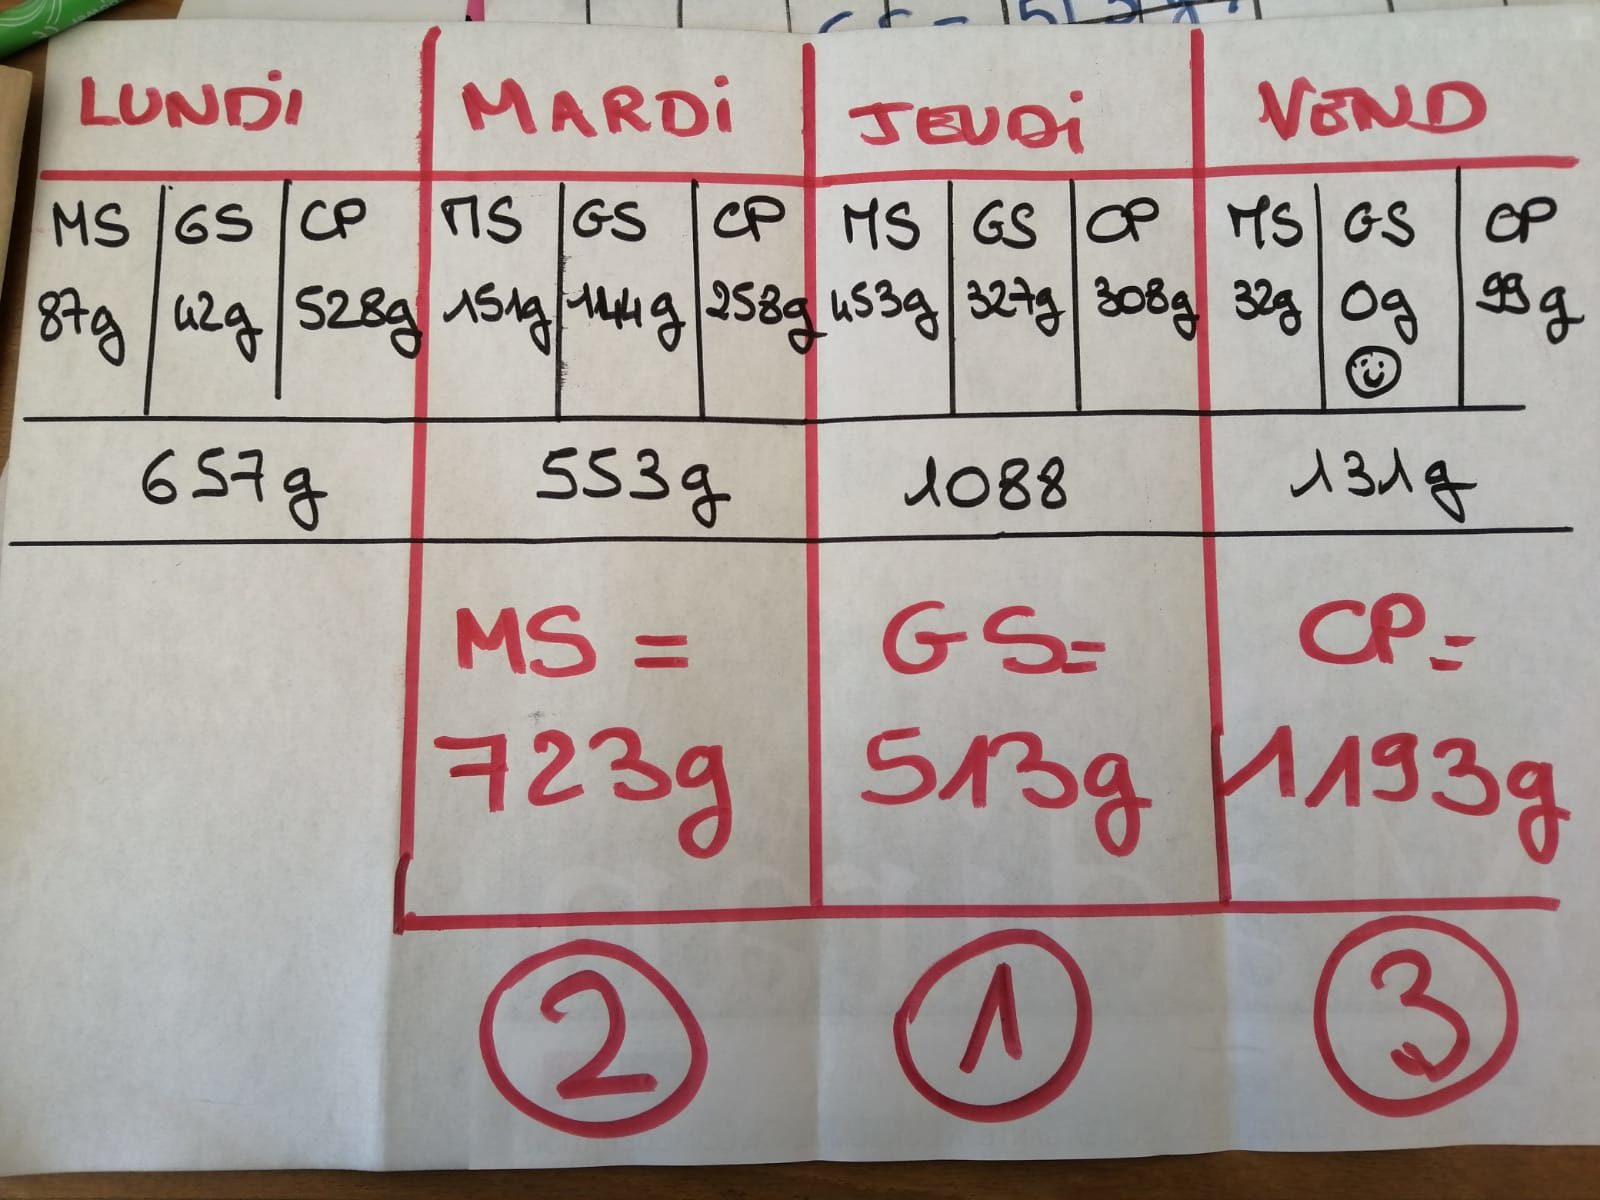 LUNDi MARDi JEUDi VEND
MS GS CP MS GS CP MS GS CP MS GS CP
87g 42g 528g 151g 144g 258g 453g 327g 308g 32g 0g 99g
657g 553g 1088 131g
MS = GS= CP=
723g 513g 1193g
2 1 3